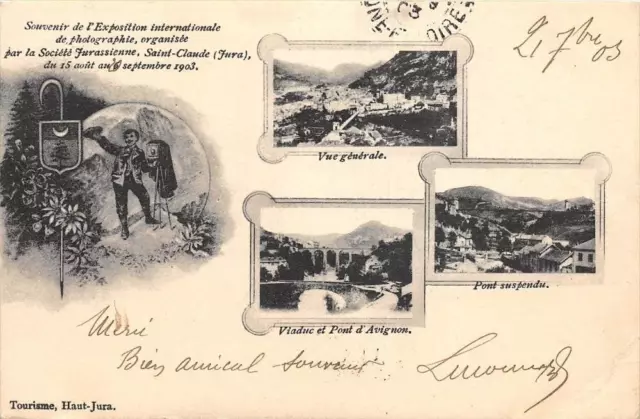 Souvenir de l'Exposition internationale
de photographie, organisée
par la Société Jurassienne, Saint-Claude (Jura),
du 15 août au 8 septembre 1903.
21 7bre 03
Vue générale.
Pont suspendu.
Viaduc et Pont d'Avignon.
Merci
Bien amical souvenir
Tourisme, Haut-Jura.